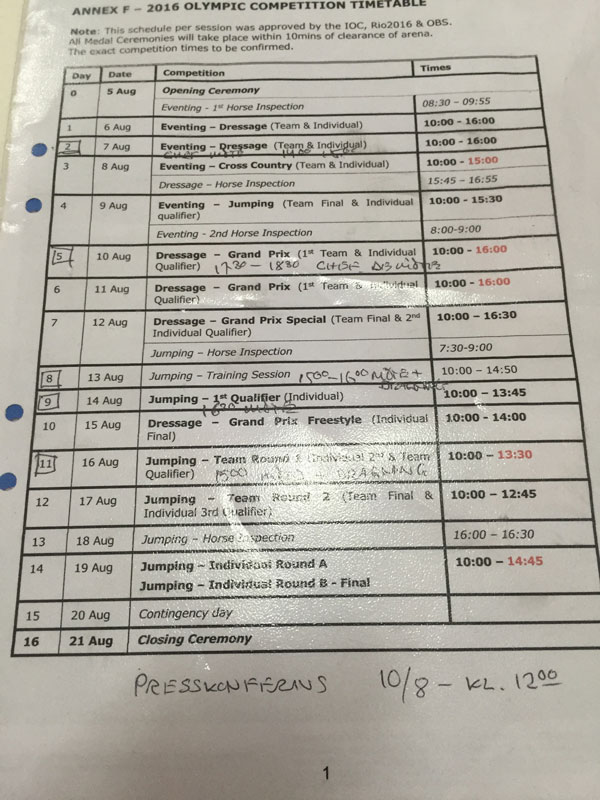 ANNEX F – 2016 OLYMPIC COMPETITION TIMETABLE
Note: This schedule per session was approved by the IOC, Rio2016 & OBS.
All Medal Ceremonies will take place within 10mins of clearance of arena.
The exact competition times to be confirmed.
Day Date Competition Times
0 5 Aug Opening Ceremony
Eventing - 1st Horse Inspection 08:30 – 09:55
1 6 Aug Eventing – Dressage (Team & Individual) 10:00 - 16:00
2 7 Aug Eventing – Dressage (Team & Individual) 10:00 - 16:00
3 8 Aug Eventing – Cross Country (Team & Individual) 10:00 - 15:00
Dressage - Horse Inspection 15:45 – 16:55
4 9 Aug Eventing – Jumping (Team Final & Individual 10:00 - 15:30
qualifier)
Eventing - 2nd Horse Inspection 8:00-9:00
5 10 Aug Dressage – Grand Prix (1st Team & Individual 10:00 - 16:00
Qualifier) 1730 – 1830
6 11 Aug Dressage – Grand Prix (1st Team & Individual 10:00 - 16:00
Qualifier)
7 12 Aug Dressage – Grand Prix Special (Team Final & 2nd 10:00 – 16:30
Individual Qualifier)
Jumping – Horse Inspection 7:30-9:00
8 13 Aug Jumping – Training Session 1500-1600 MÖTE + 10:00 – 14:50
DRAGNING
9 14 Aug Jumping – 1st Qualifier (Individual) 10:00 – 13:45
1630 MÖTE
10 15 Aug Dressage – Grand Prix Freestyle (Individual 10:00 - 14:00
Final)
11 16 Aug Jumping – Team Round 1 (Individual 2nd & Team 10:00 – 13:30
Qualifier) 1500 DRAGNING
12 17 Aug Jumping – Team Round 2 (Team Final & 10:00 – 12:45
Individual 3rd Qualifier)
13 18 Aug Jumping – Horse Inspection 16:00 – 16:30
14 19 Aug Jumping – Individual Round A 10:00 – 14:45
Jumping – Individual Round B - Final
15 20 Aug Contingency day
16 21 Aug Closing Ceremony
PRESSKONFERENS 10/8 – KL. 1200
1